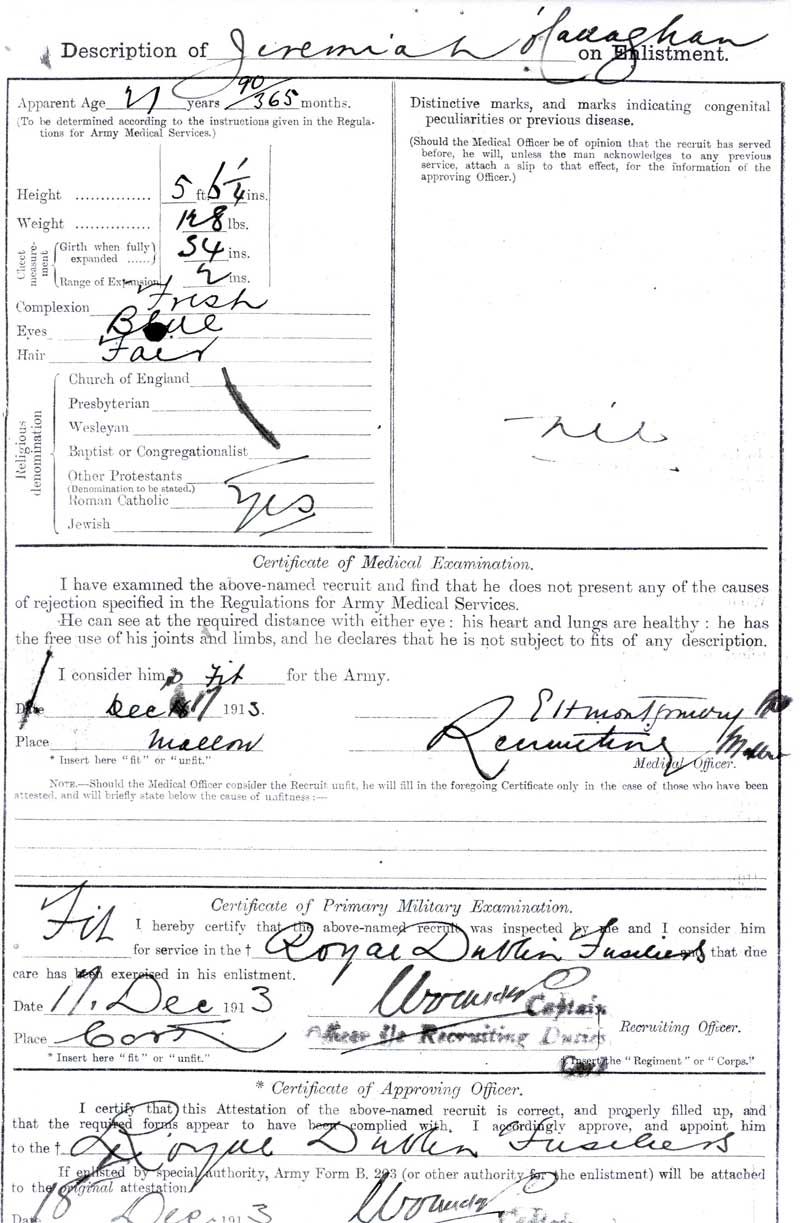 Description of Jeremiah O'Callaghan on Enlistment.
Apparent Age 21 years 90/365 months.
(To be determined according to the instructions given in the Regula-
tions for Army Medical Services.)
Height ............... 5 ft. 5 1/4 ins.
Weight ............... 128 lbs.
Chest measure-ment
Girth when fully expanded ...... 34 ins.
Range of Expansion 2 ins.
Complexion Fresh
Eyes Blue
Hair Fair
Religious denomination
Church of England
Presbyterian
Wesleyan
Baptist or Congregationalist
Other Protestants
(Denomination to be stated.)
Roman Catholic Yes
Jewish
Distinctive marks, and marks indicating congenital
peculiarities or previous disease.
(Should the Medical Officer be of opinion that the recruit has served
before, he will, unless the man acknowledges to any previous
service, attach a slip to that effect, for the information of the
approving Officer.)
nil
Certificate of Medical Examination.
I have examined the above-named recruit and find that he does not present any of the causes
of rejection specified in the Regulations for Army Medical Services.
He can see at the required distance with either eye: his heart and lungs are healthy: he has
the free use of his joints and limbs, and he declares that he is not subject to fits of any description.
I consider him* Fit for the Army.
Date Dec 17 1913.
Place Mallow
E H Montgomery
Recruiting
Medical Officer. Mallow
* Insert here "fit" or "unfit."
NOTE.—Should the Medical Officer consider the Recruit unfit, he will fill in the foregoing Certificate only in the case of those who have been
attested, and will briefly state below the cause of unfitness:—
Certificate of Primary Military Examination.
Fit I hereby certify that the above-named recruit was inspected by me and I consider him
* for service in the † Royal Dublin Fusiliers and that due
care has been exercised in his enlistment.
Date 17 Dec 1913
Captain
Place Cork
Officer i/c Recruiting Duties
Recruiting Officer.
Cork
* Insert here "fit" or "unfit."
† Insert the "Regiment" or "Corps."
* Certificate of Approving Officer.
I certify that this Attestation of the above-named recruit is correct, and properly filled up, and
that the required forms appear to have been complied with. I accordingly approve, and appoint him
to the † Royal Dublin Fusiliers
If enlisted by special authority, Army Form B. 203 (or other authority for the enlistment) will be attached
to the original attestation.
Date 18 Dec 1913